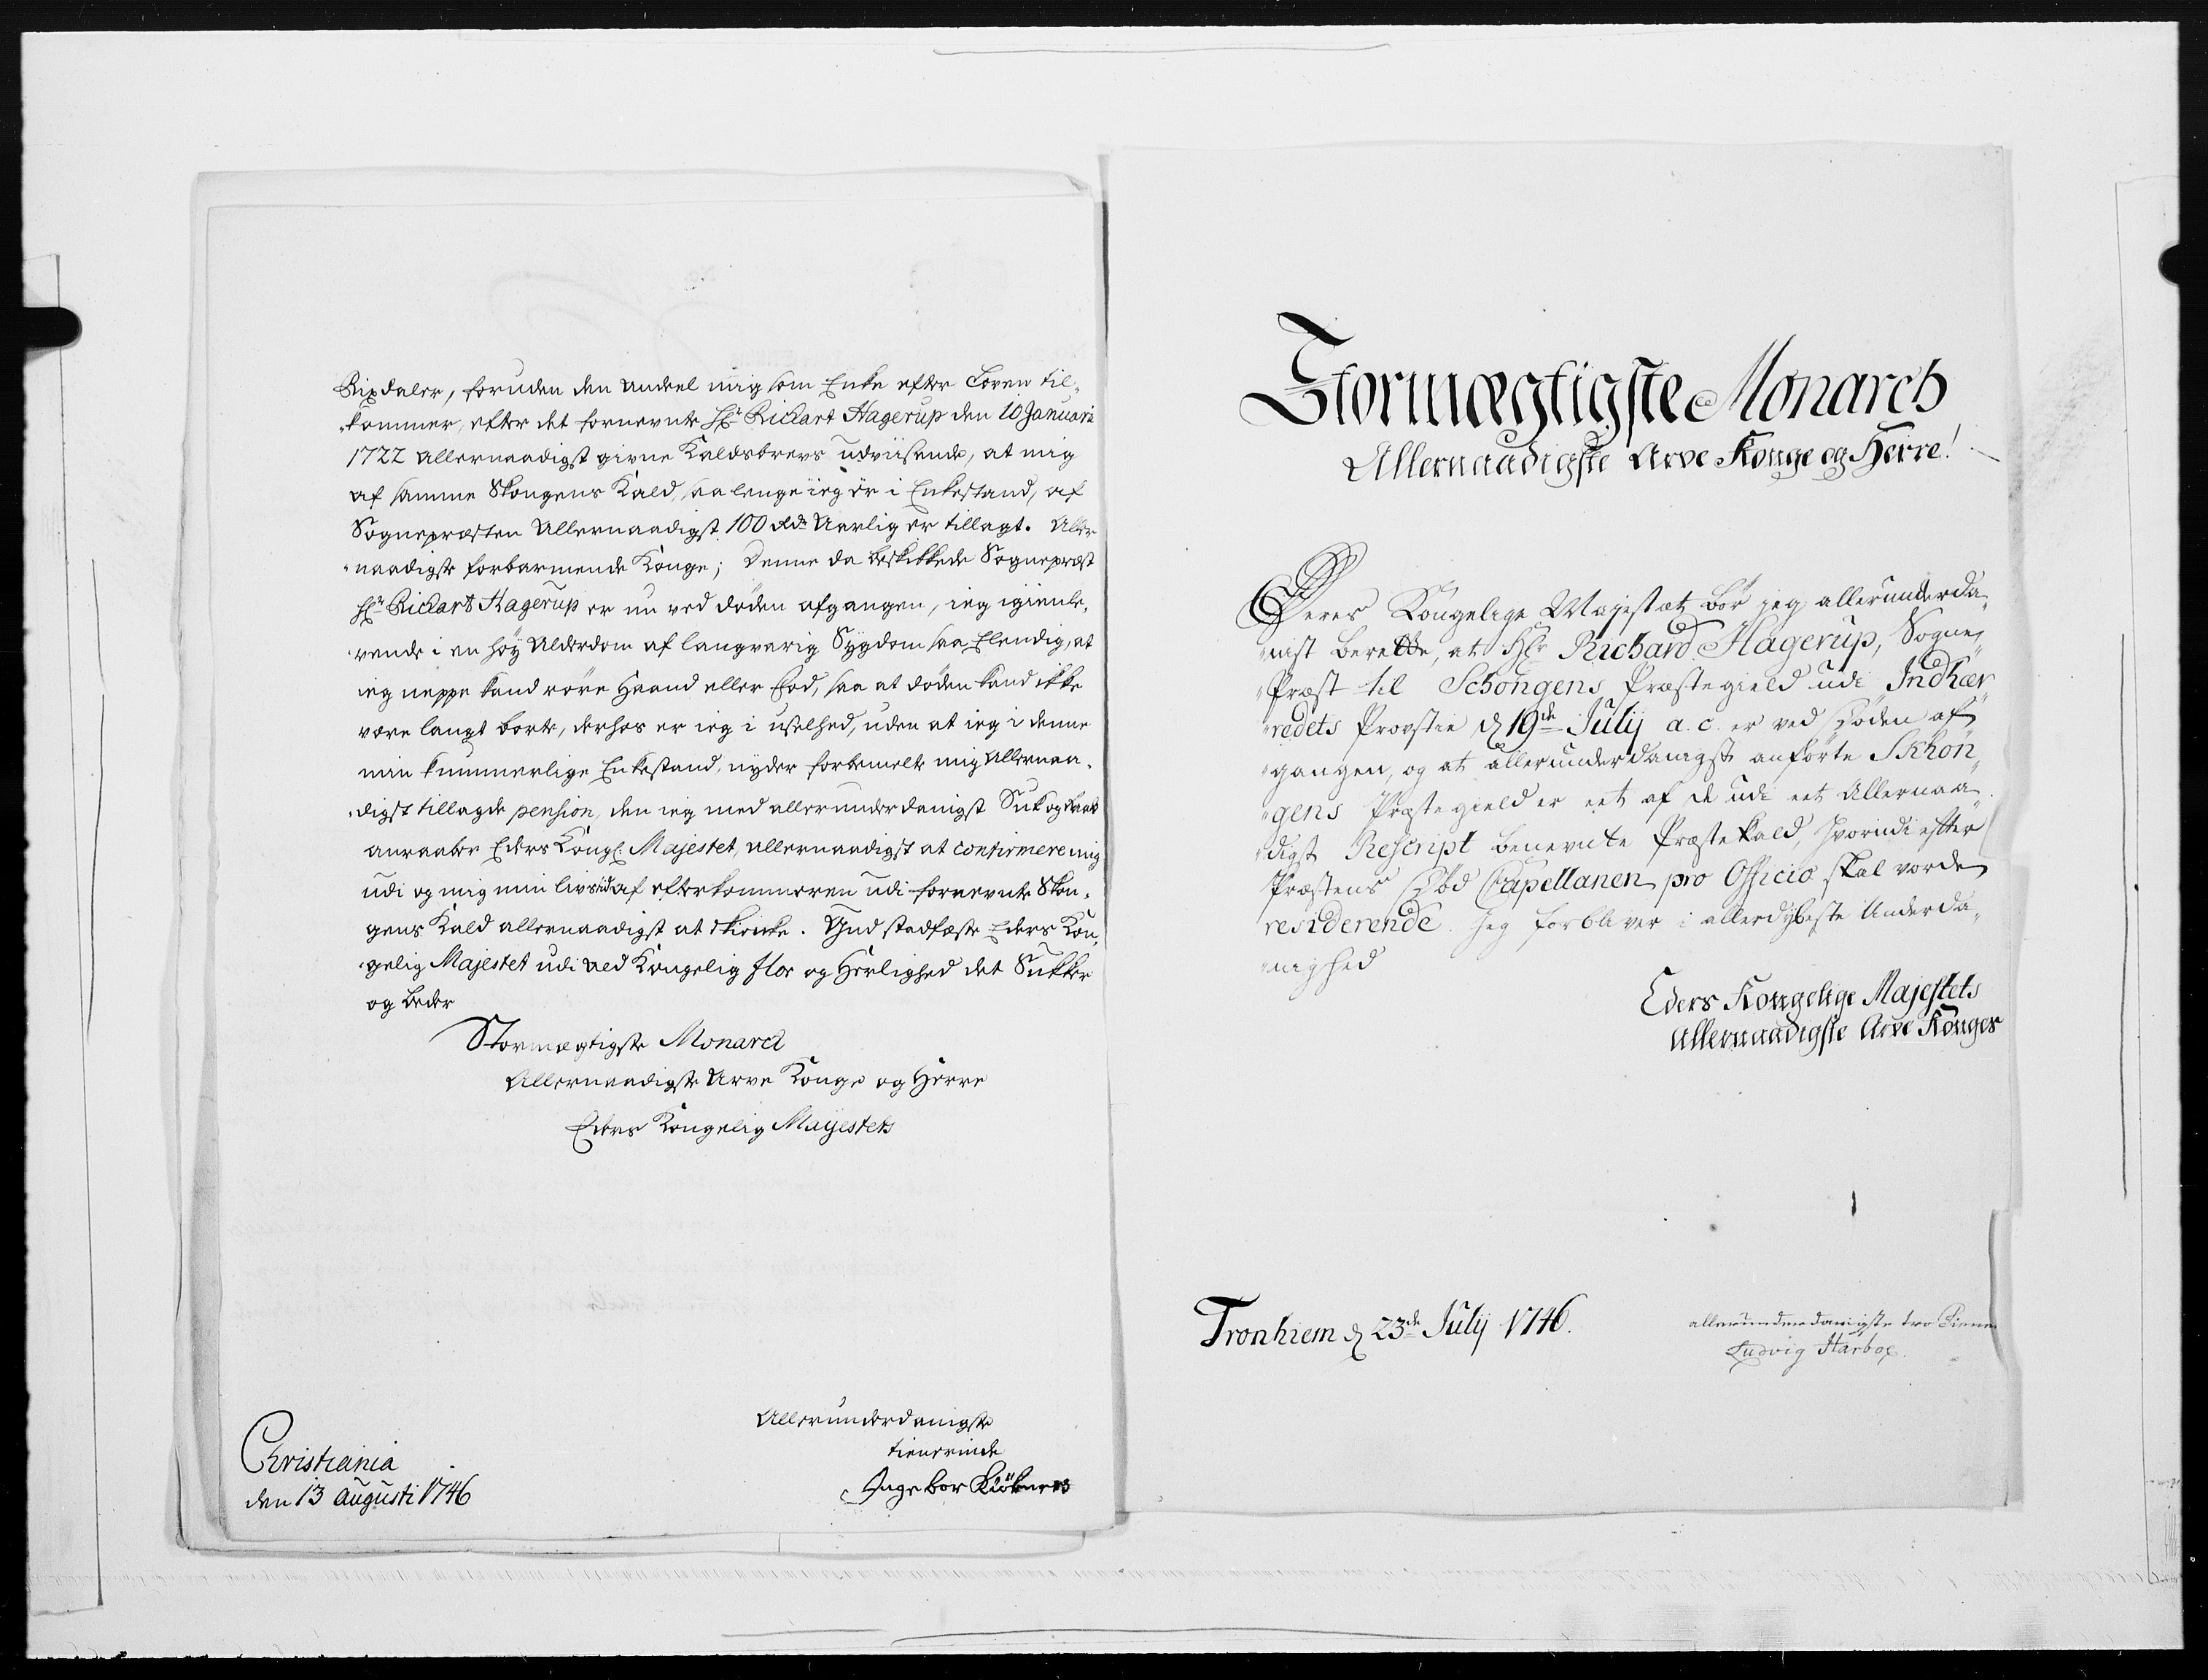 Rixdaler, foruden den Andeel mig som Enke efter Loven til-
kommer, efter det fornevnte Hr Richart Hagerup den 10 Januarii
1722 Allernaadigst givne Kaldsbrevs udviisende, at mig
af samme Skongens Kald, saa lenge ieg er i Enkestand, af
Sognepræsten Allernaadigst 100 Rdr Aarlig er tillagt. Aller-
naadigste forbarmende Konge; Denne da beskikkede Sognepræst
Hr Richart Hagerup er nu ved døden afgangen, ieg igienle-
vende i en høy Alderdom af langvarig Sygdom saa Elendig, at
ieg neppe kand røre Haand eller Fod, saa at døden kand ikke
være langt borte, derhos er ieg i uselhed, uden at ieg i denne
min kummerlige Enkestand, nyder forbemelte mig Allernaa-
digst tillagde pension, den ieg med allerunderdanigst Suk og
anraaber Eders Kongl. Majestet, allernaadigst at confirmere mig
udi og mig min livstid af efterkommeren udi fornevnte Skon-
gens Kald allernaadigst at skienke. Gud stadfæste Eders Kon-
gelig Majestet udi ald Kongelig flor og Herlighed det Sukker
og beder
Stormægtigste Monarch
Allernaadigste Arve Konge og Herre
Eders Kongelig Mayestets
Allerunderdanigste
tienerinde
Ingebor Kiøbners
Christiania
den 13 Augusti 1746
Stormægtigste Monarch
Allernaadigste Arve Konge og Herre!
Deres Kongelige Majestæt bør jeg allerunderda-
nist berette, at Hr Richard Hagerup, Sogne-
Præst til Schongens Præstegield udi Indhær-
redets Provstie d 19de Julij a. c. er ved Døden af-
gangen, og at allerunderdanigst anførte Skhon-
gens Præstegield er eet af de udi eet Allernaa-
digst Rescript benevnte Præstekald, hvorudi efter
Præstens Død Capellanen pro Officio skal vorde
residerende. Jeg forbliver i allerdybeste Underda-
nighed
Eders Kongelige Majestets
Allernaadigste Arve Konges
Tronhiem d 23de Julij 1746.
allerunderdanigste tro Tiener
Ludvig Harboe.